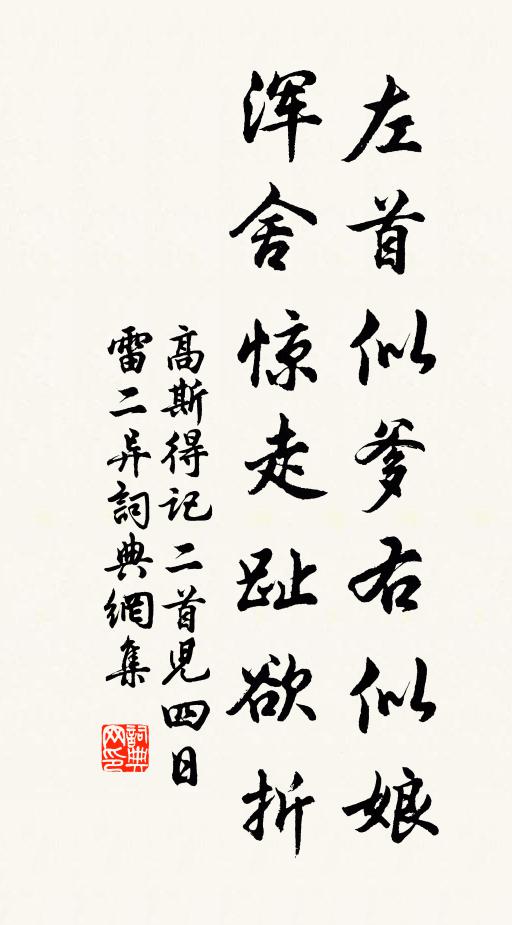 左首似爹右似娘
浑舍惊走趾欲折
高斯得记二首児四日
雷二异詞典網集
詞典网印